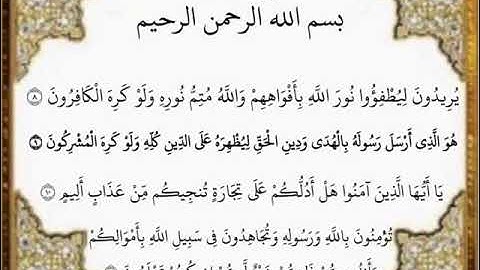 بسم الله الرحمن الرحيم
يُرِيدُونَ لِيُطْفِؤُوا نُورَ اللَّهِ بِأَفْوَاهِهِمْ وَاللَّهُ مُتِمُّ نُورِهِ وَلَوْ كَرِهَ الْكَافِرُونَ ٨
هُوَ الَّذِي أَرْسَلَ رَسُولَهُ بِالْهُدَى وَدِينِ الْحَقِّ لِيُظْهِرَهُ عَلَى الدِّينِ كُلِّهِ وَلَوْ كَرِهَ الْمُشْرِكُونَ ٩
يَا أَيُّهَا الَّذِينَ آمَنُوا هَلْ أَدُلُّكُمْ عَلَى تِجَارَةٍ تُنجِيكُم مِّنْ عَذَابٍ أَلِيمٍ ١٠
تُؤْمِنُونَ بِاللَّهِ وَرَسُولِهِ وَتُجَاهِدُونَ فِي سَبِيلِ اللَّهِ بِأَمْوَالِكُمْ